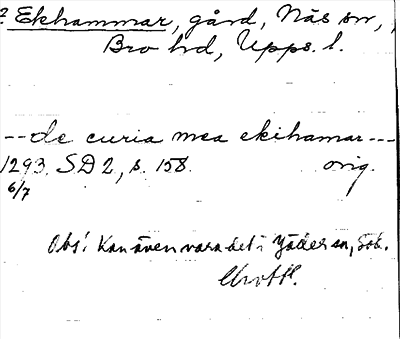 ? Ekhammar, gård, Näs sn,
Bro hd, Upps. l.
--de curia mea ekihamar---
1293. SD 2, s. 158. orig.
6/7
Obs! Kan även vara det i Jäder sn, Söd.